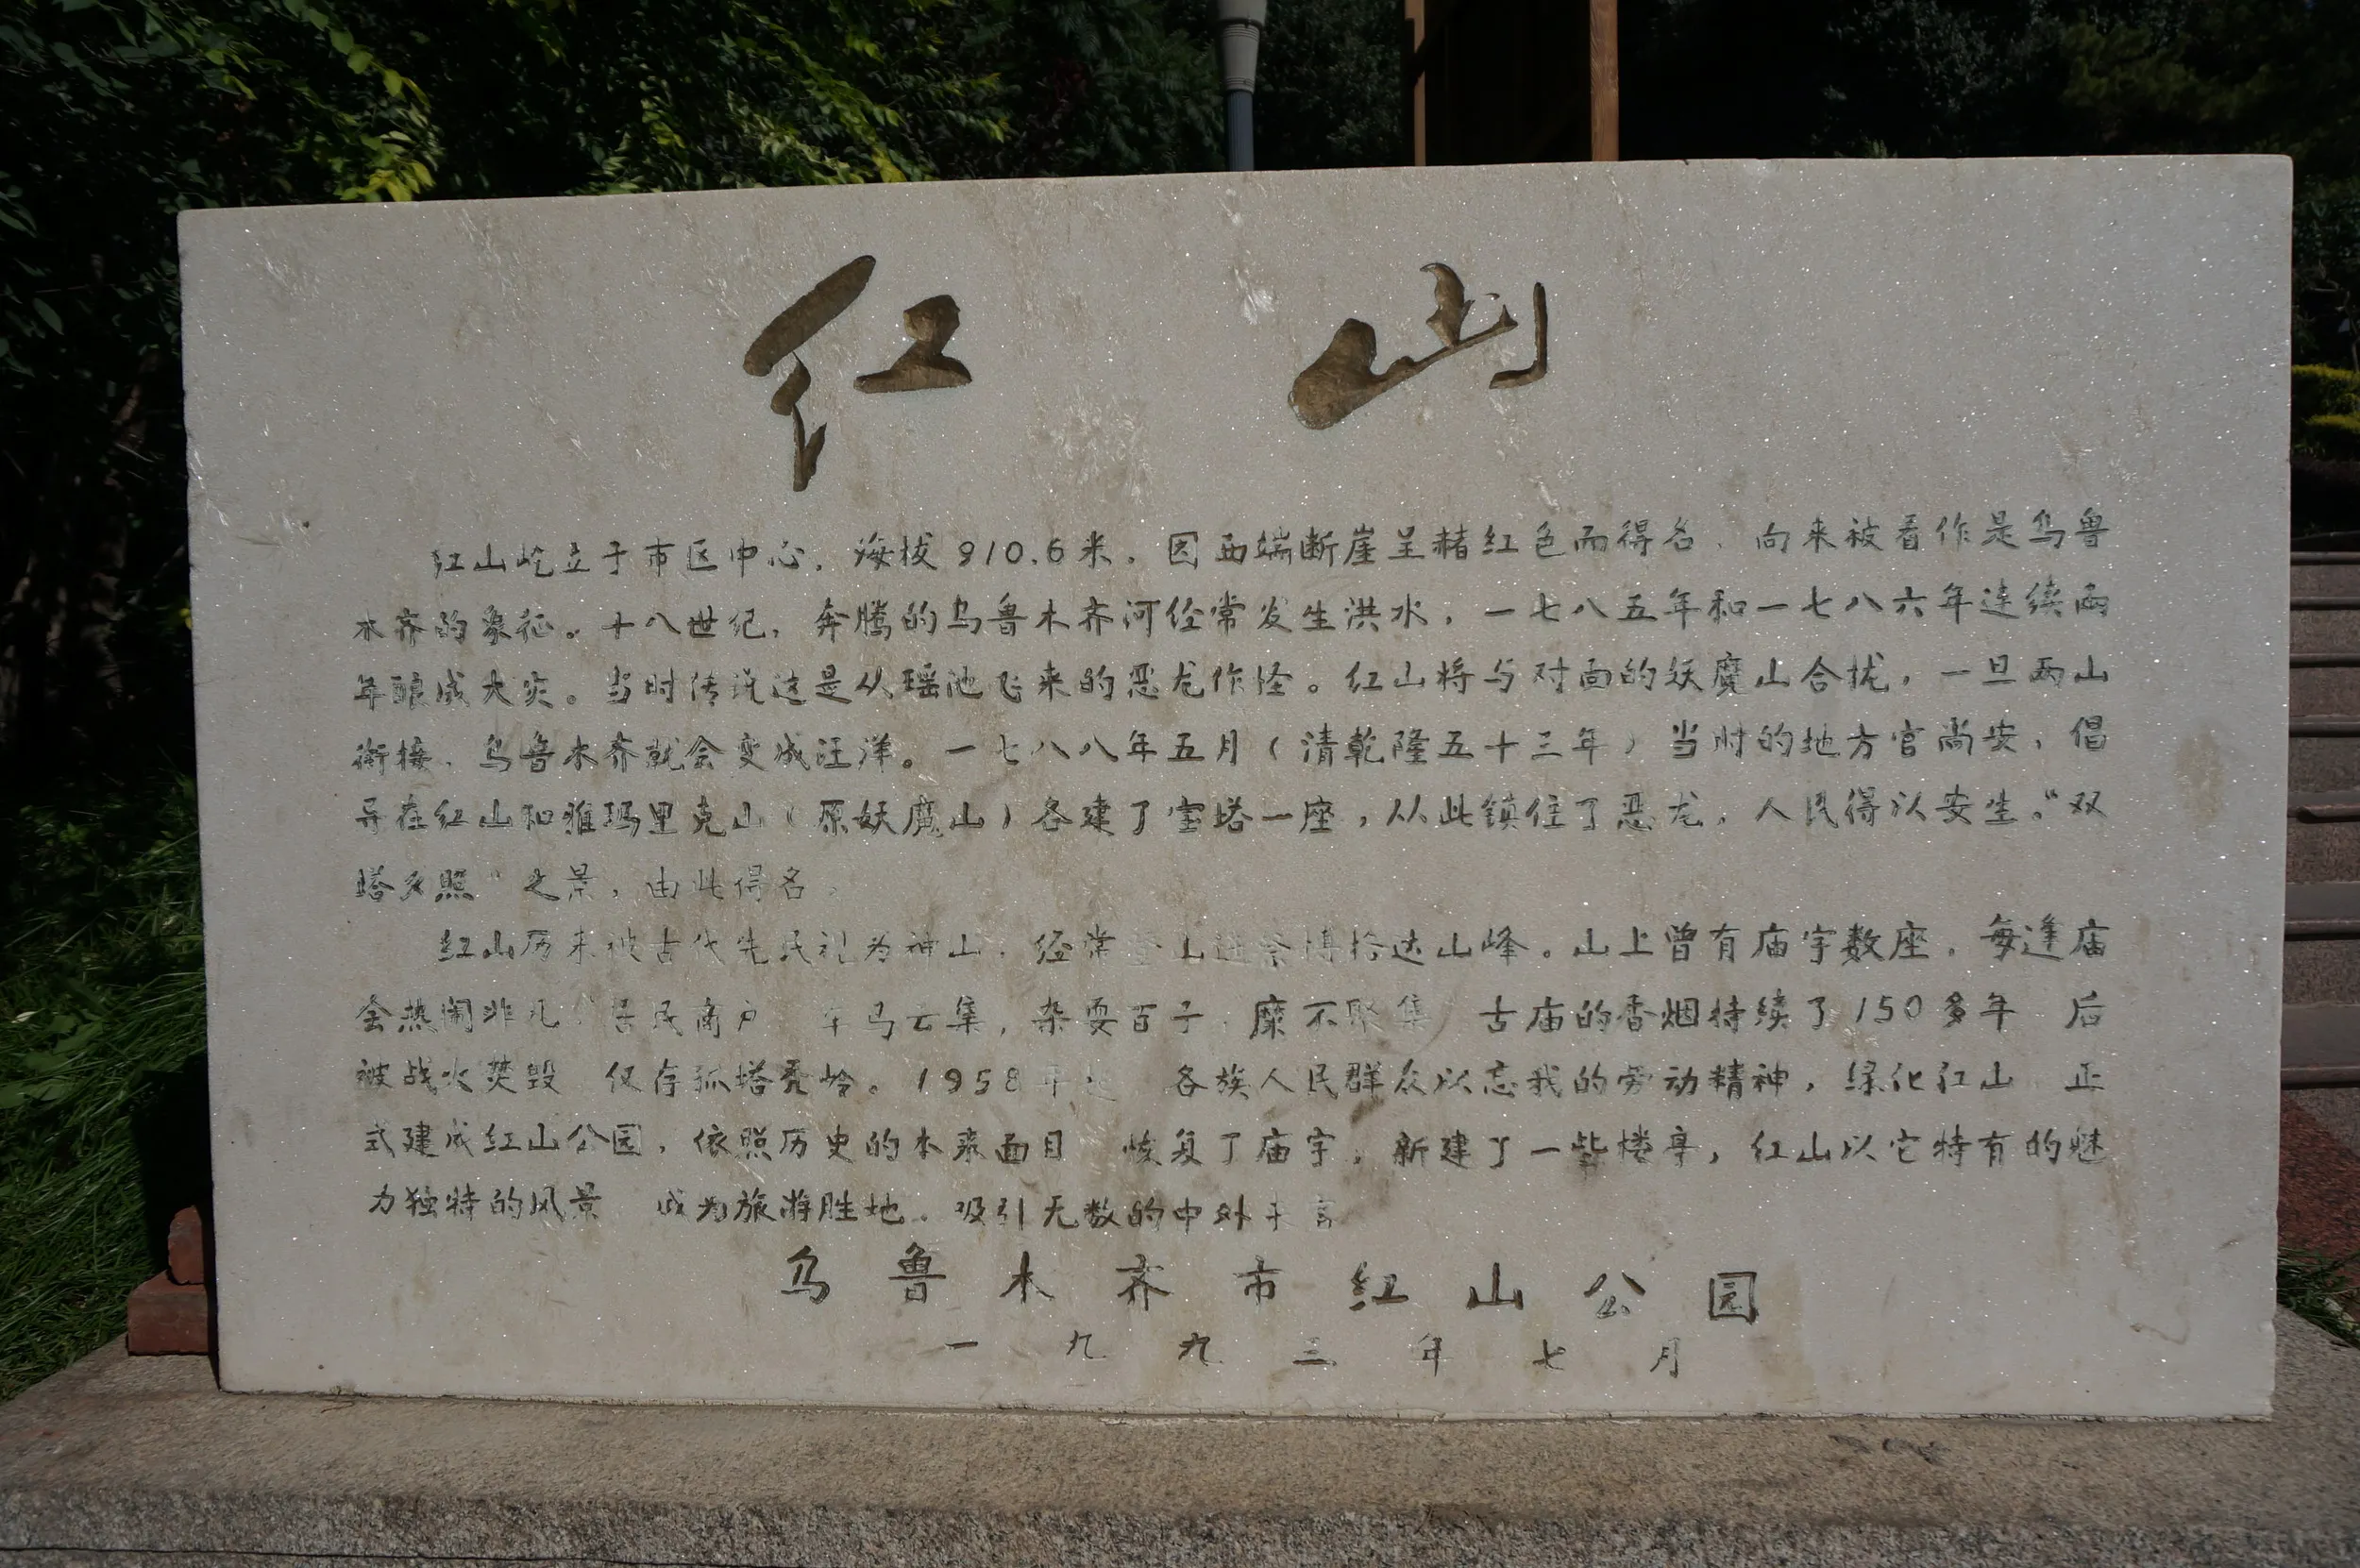 红山
红山屹立于市区中心，海拔910.6米。因西端断崖呈赭红色而得名，向来被看作是乌鲁
木齐的象征。十八世纪，奔腾的乌鲁木齐河经常发生洪水，一七八五年和一七八六年连续两
年酿成大灾。当时传说这是从瑶池飞来的恶龙作怪。红山将与对面的妖魔山合拢，一旦两山
衔接，乌鲁木齐就会变成汪洋。一七八八年五月（清乾隆五十三年）当时的地方官尚安，倡
导在红山和雅玛里克山（原妖魔山）各建了宝塔一座，从此镇住了恶龙，人民得以安生。“双
塔夕照”之景，由此得名。
红山历来被古代先民礼为神山，经常登山遥祭博格达山峰。山上曾有庙宇数座，每逢庙
会热闹非凡，居民商户 车马云集，杂耍百子，糜不聚集 古庙的香烟持续了150多年 后
被战火焚毁 仅存孤塔秃岭。1958年起 各族人民群众以忘我的劳动精神，绿化红山 正
式建成红山公园，依照历史的本来面目 恢复了庙宇，新建了一些楼亭，红山以它特有的魅
力独特的风景 成为旅游胜地。吸引无数的中外
乌鲁木齐市红山公园
一九九三年七月